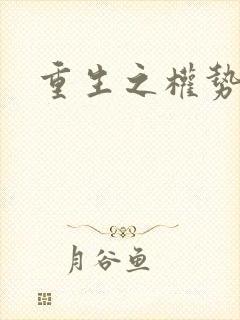 重生之權勢
月谷鱼